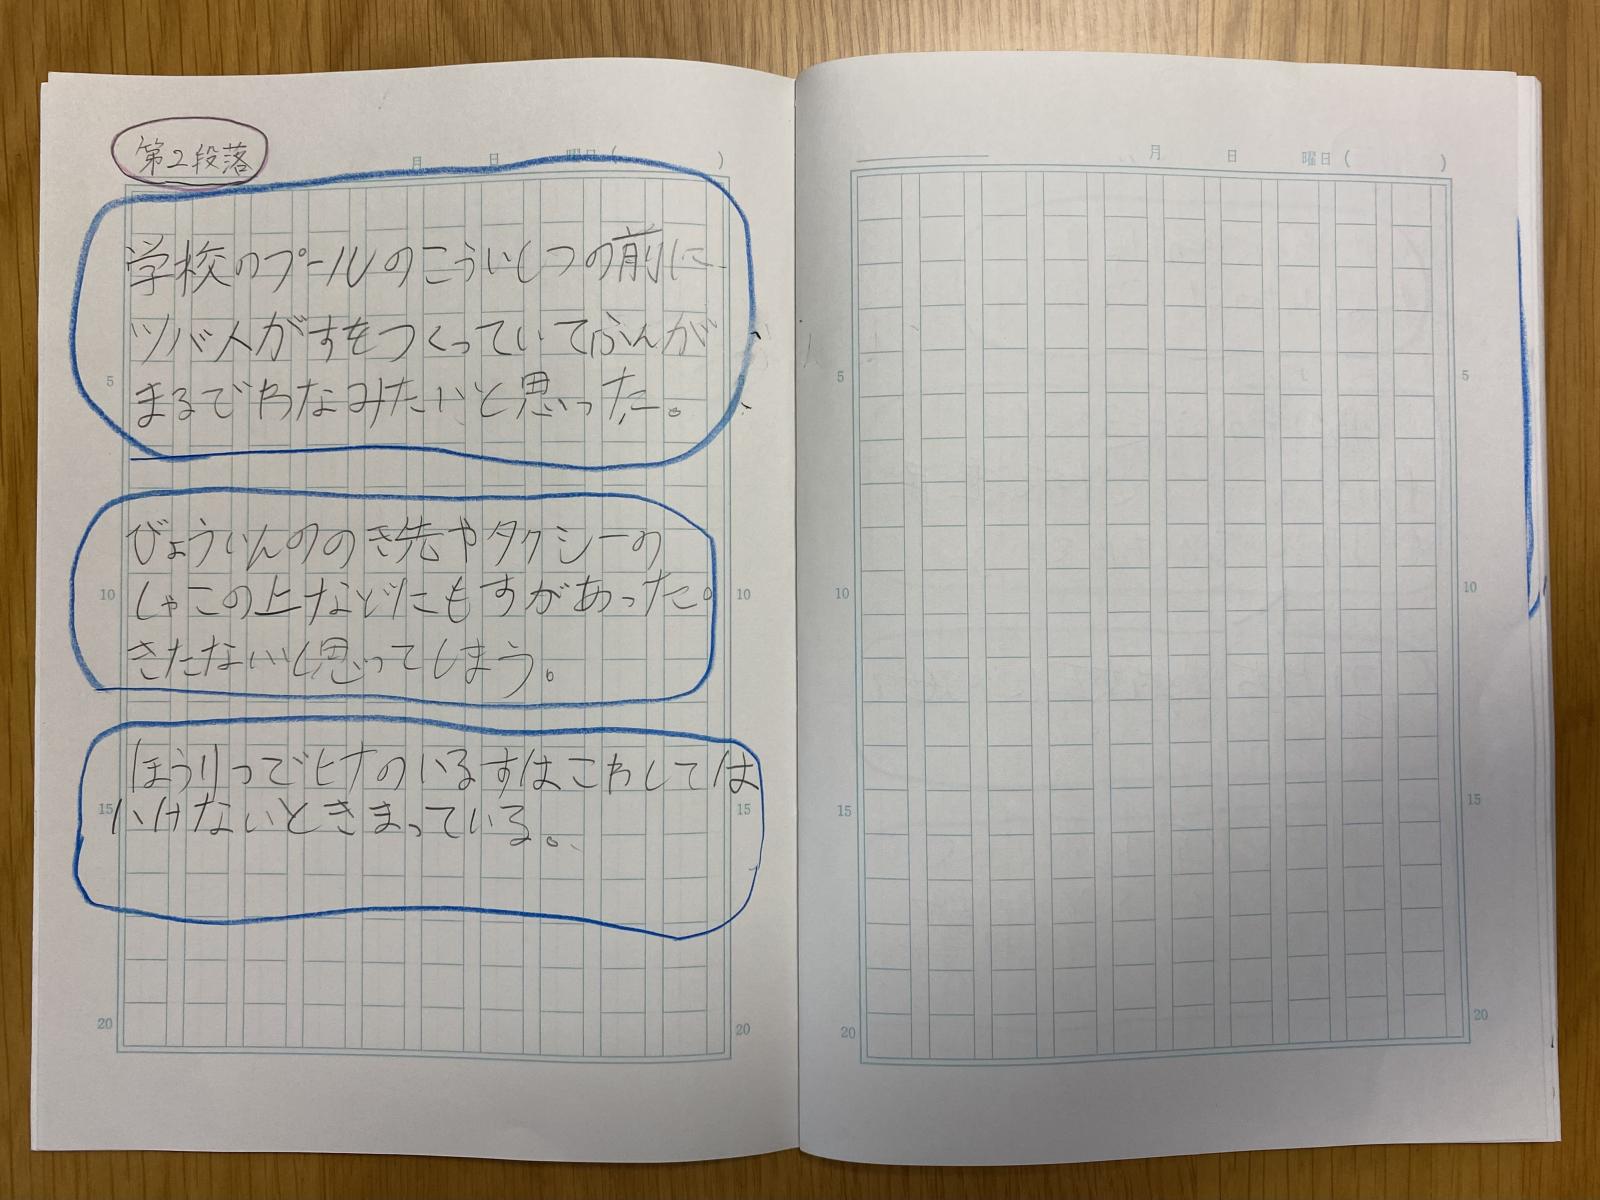 第2段落
月 日 曜日 ( )
学校のプールのこういしつの前に
ツバメがすをつくっていてふんが
まるでわなみたいと思った。
びょういんののき先やタクシーの
しゃこの上などにもすがあった。
きたないと思ってしまう。
ほうりつでヒナのいるすはこわしては
いけないときまっている。
5
10
10
15
15
20
20
月 日 曜日 ( )
5
5
10
10
15
15
20
20